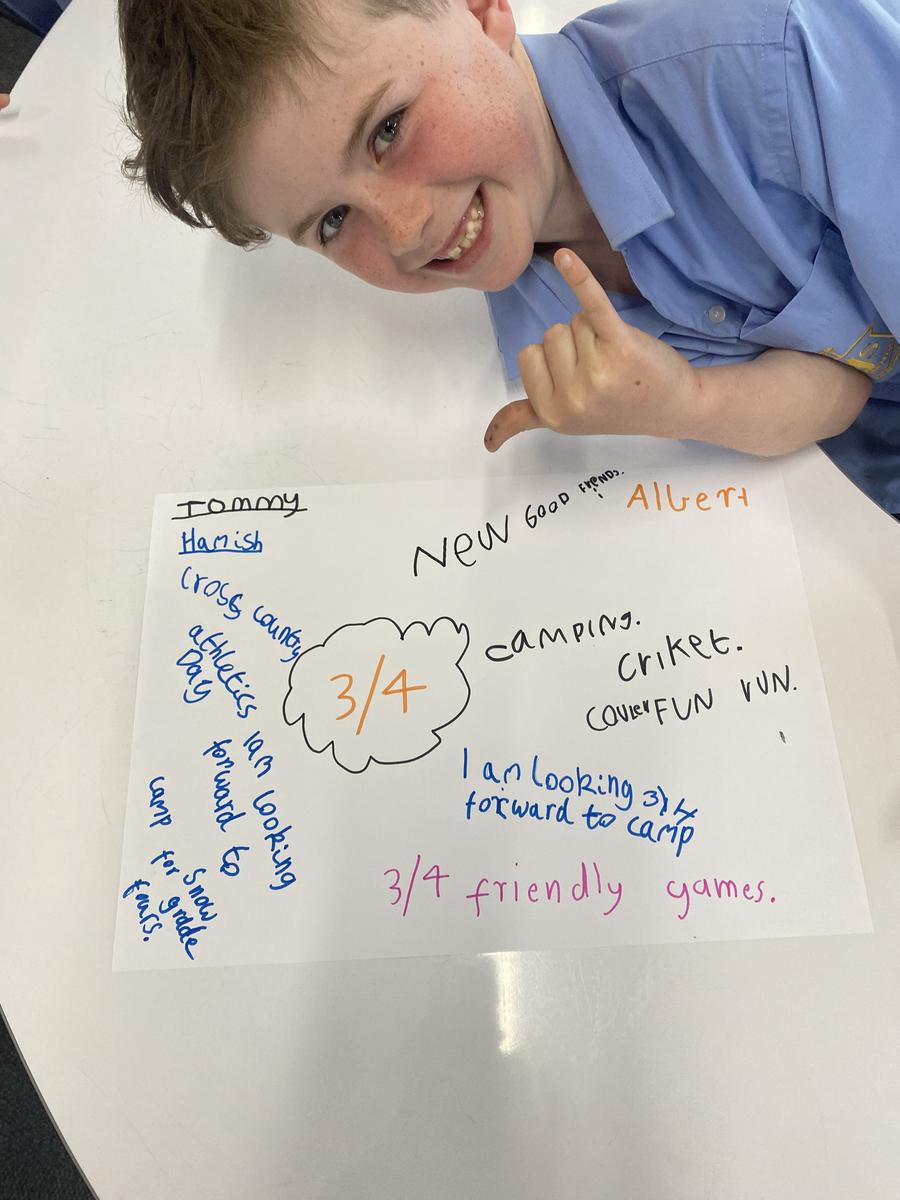 Tommy
Hamish
NEW GOOD FriENDS.
Albert
Cross country
athletics
Day
3/4
CAMPING.
Criket.
FUN RUN.
I am looking
forward to
Snow
camp for grade
fours.
I am looking 3/4
forward to camp
3/4 friendly games.